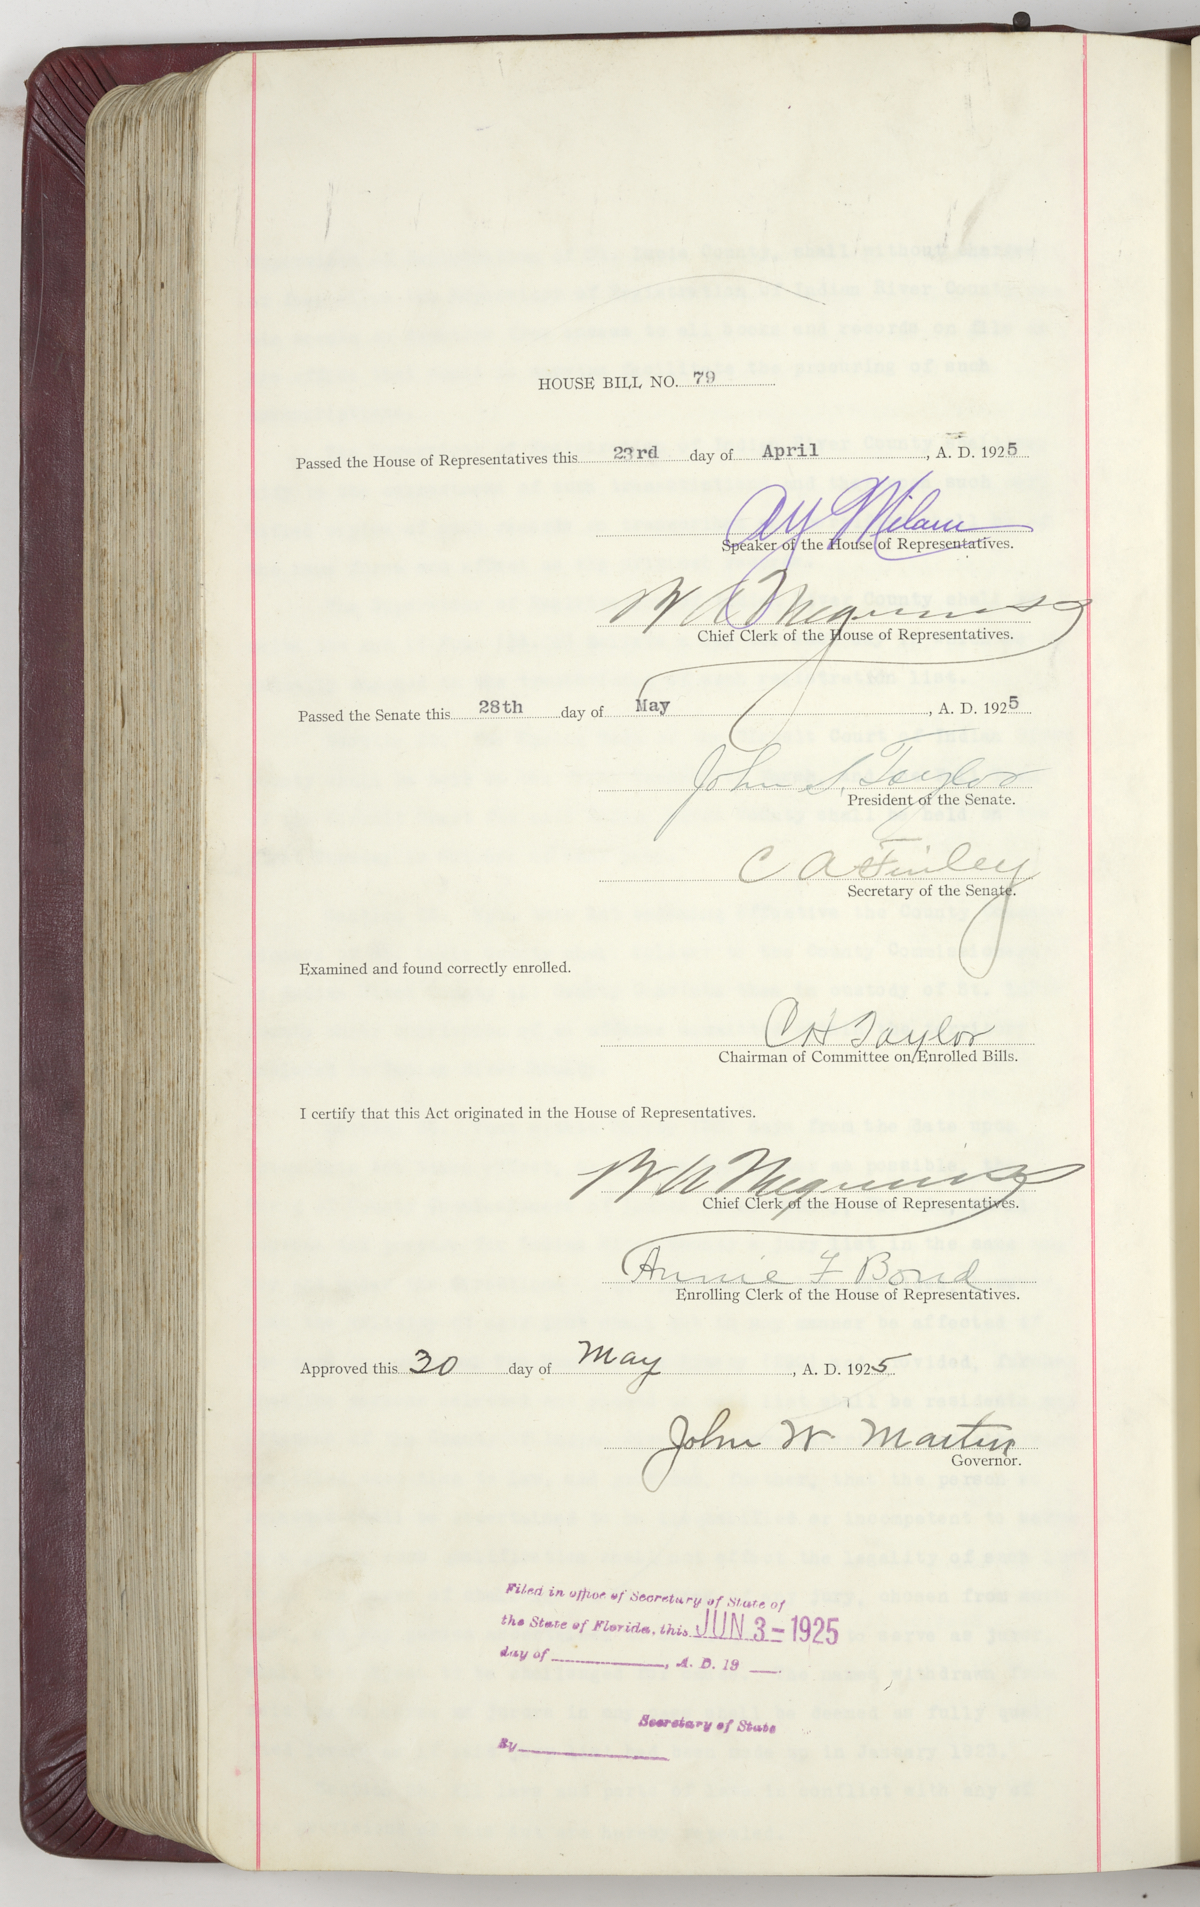 HOUSE BILL NO. 79
Passed the House of Representatives this 23rd day of April, A. D. 1925
A Y Milam
Speaker of the House of Representatives.
W A
Chief Clerk of the House of Representatives.
Passed the Senate this 28th day of May, A. D. 1925
John S. Taylor
President of the Senate.
C A Finley
Secretary of the Senate.
Examined and found correctly enrolled.
C H Taylor
Chairman of Committee on Enrolled Bills.
I certify that this Act originated in the House of Representatives.
W A
Chief Clerk of the House of Representatives.
Annie F Bond
Enrolling Clerk of the House of Representatives.
Approved this 30 day of May, A. D. 1925.
John W Martin
Governor.
Filed in office of Secretary of State of
the State of Florida, this JUN 3-1925
day of , A. D. 19 .
Secretary of State
By